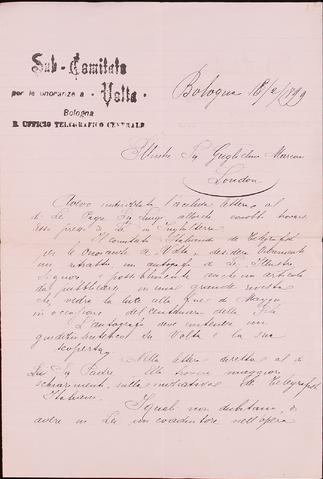 Sub-Comitato
per le onoranze a Volta
Bologna
R. UFFICIO TELEGRAFICO CENTRALE
Bologna 18/2/1899
Illustre Sig Guglielmo Marconi
London
Avevo indirizzata l'acclusa lettera al
di Lei Papà Sig Luigi, allorchè
presso di Lei in Inghilterra.
Il comitato Italiano dei Telegrafisti
per le Onoranze a Volta, desidera vivamente
un autografo di Lei Illustre
Signore e possibilmente anche un articolo
da pubblicarsi in una grande rivista
che vedrà la luce alla fine di Maggio
in occasione del Centenario della Pila
L'autografo deve contenere un
giudizio sintetico su Volta e la sua
scoperta.
Nella lettera diretta al di
Lei Sig Padre, Ella troverà maggiori
schiarimenti sulla iniziativa dei Telegrafisti
Italiani.
I quali non dubitano di
avere in Lei un coadiutore nell'opera